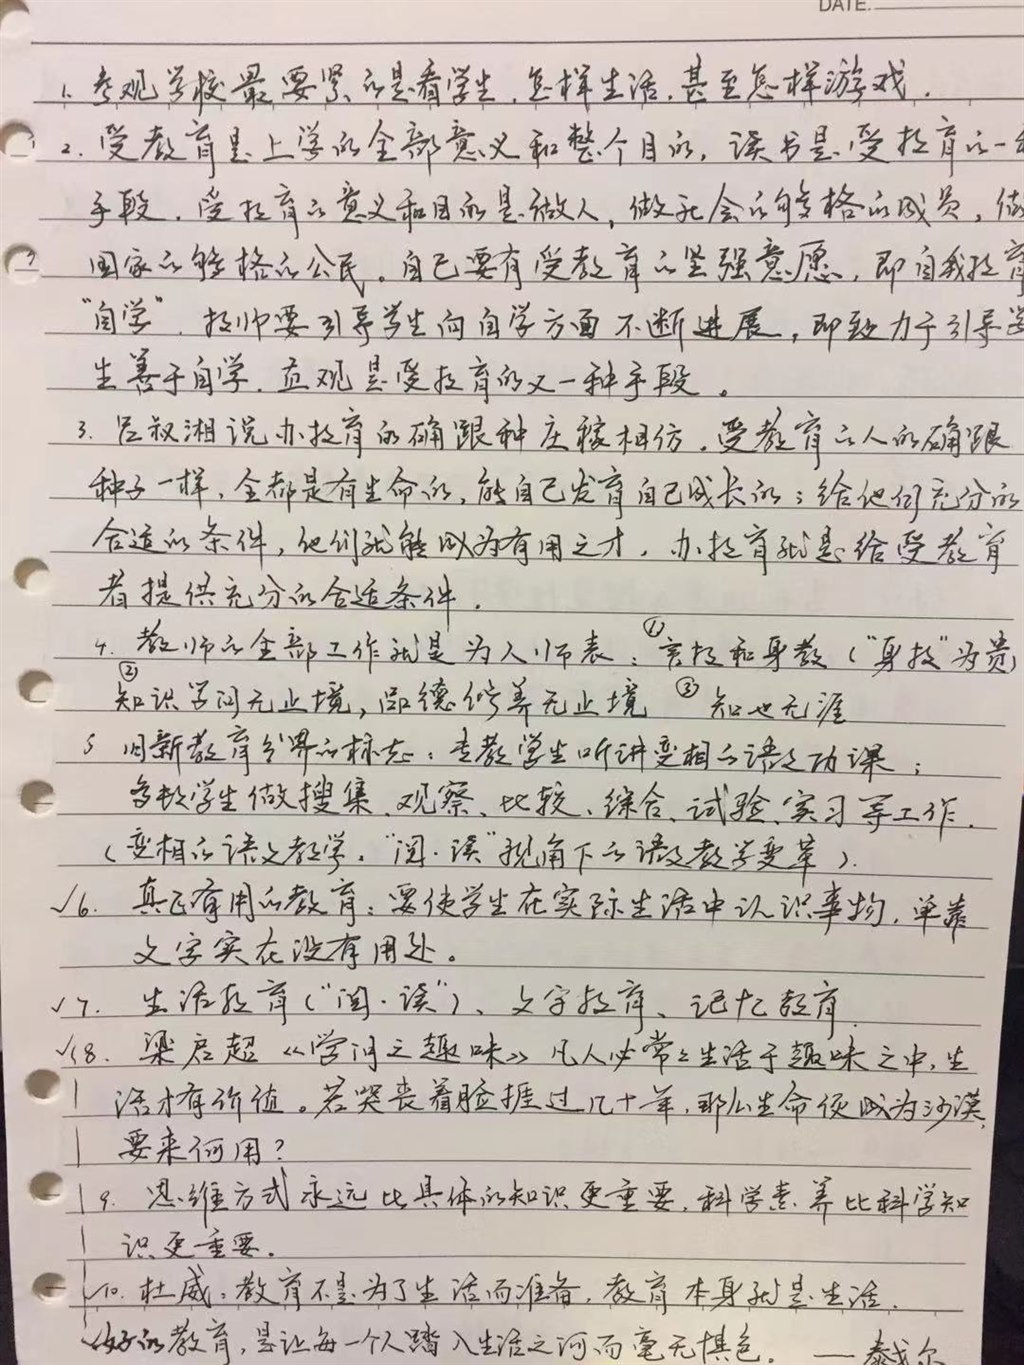 DATE.
1. 参观学校最要紧的是看学生,怎样生活,甚至怎样游戏.
2. 受教育是上学的全部意义和整个目的,读书是受教育的一种
手段,受教育的意义和目的是做人,做社会的够格的成员,做
国家的够格的公民。自己要有受教育的坚强意愿,即自我教育
"自学",教师要引导学生向自学方面不断进展,即致力于引导学
生善于自学.直观是受教育的又一种手段。
3. 吕叔湘说办教育的确跟种庄稼相仿.受教育的人的确跟
种子一样,全都是有生命的,能自己发育自己成长的;给他们充分的
合适的条件,他们就能成为有用之才.办教育就是给受教育
者提供充分的合适条件.
4. 教师的全部工作就是为人师表:①言教和身教("身教"为贵)
②知识学问无止境,品德修养无止境 ③知也无涯
5 旧新教育分界的标志:专教学生听讲变相的语文功课;
多教学生做搜集、观察、比较、综合、试验、实习等工作.
(变相的语文教学."阅·读"视角下的语文教学变革).
√6. 真正有用的教育:要使学生在实际生活中认识事物,单靠
文字实在没有用处。
√7. 生活教育("阅·读")、文字教育、记忆教育.
√8. 梁启超《学问之趣味》凡人必常常生活于趣味之中,生
活才有价值。若哭丧着脸捱过几十年,那么生命便成为沙漠,
要来何用?
9. 思维方式永远比具体的知识更重要,科学素养比科学知
识更重要.
√10. 杜威:教育不是为了生活而准备,教育本身就是生活.
好的教育,是让每一个人踏入生活之河而毫无惧色. ——泰戈尔